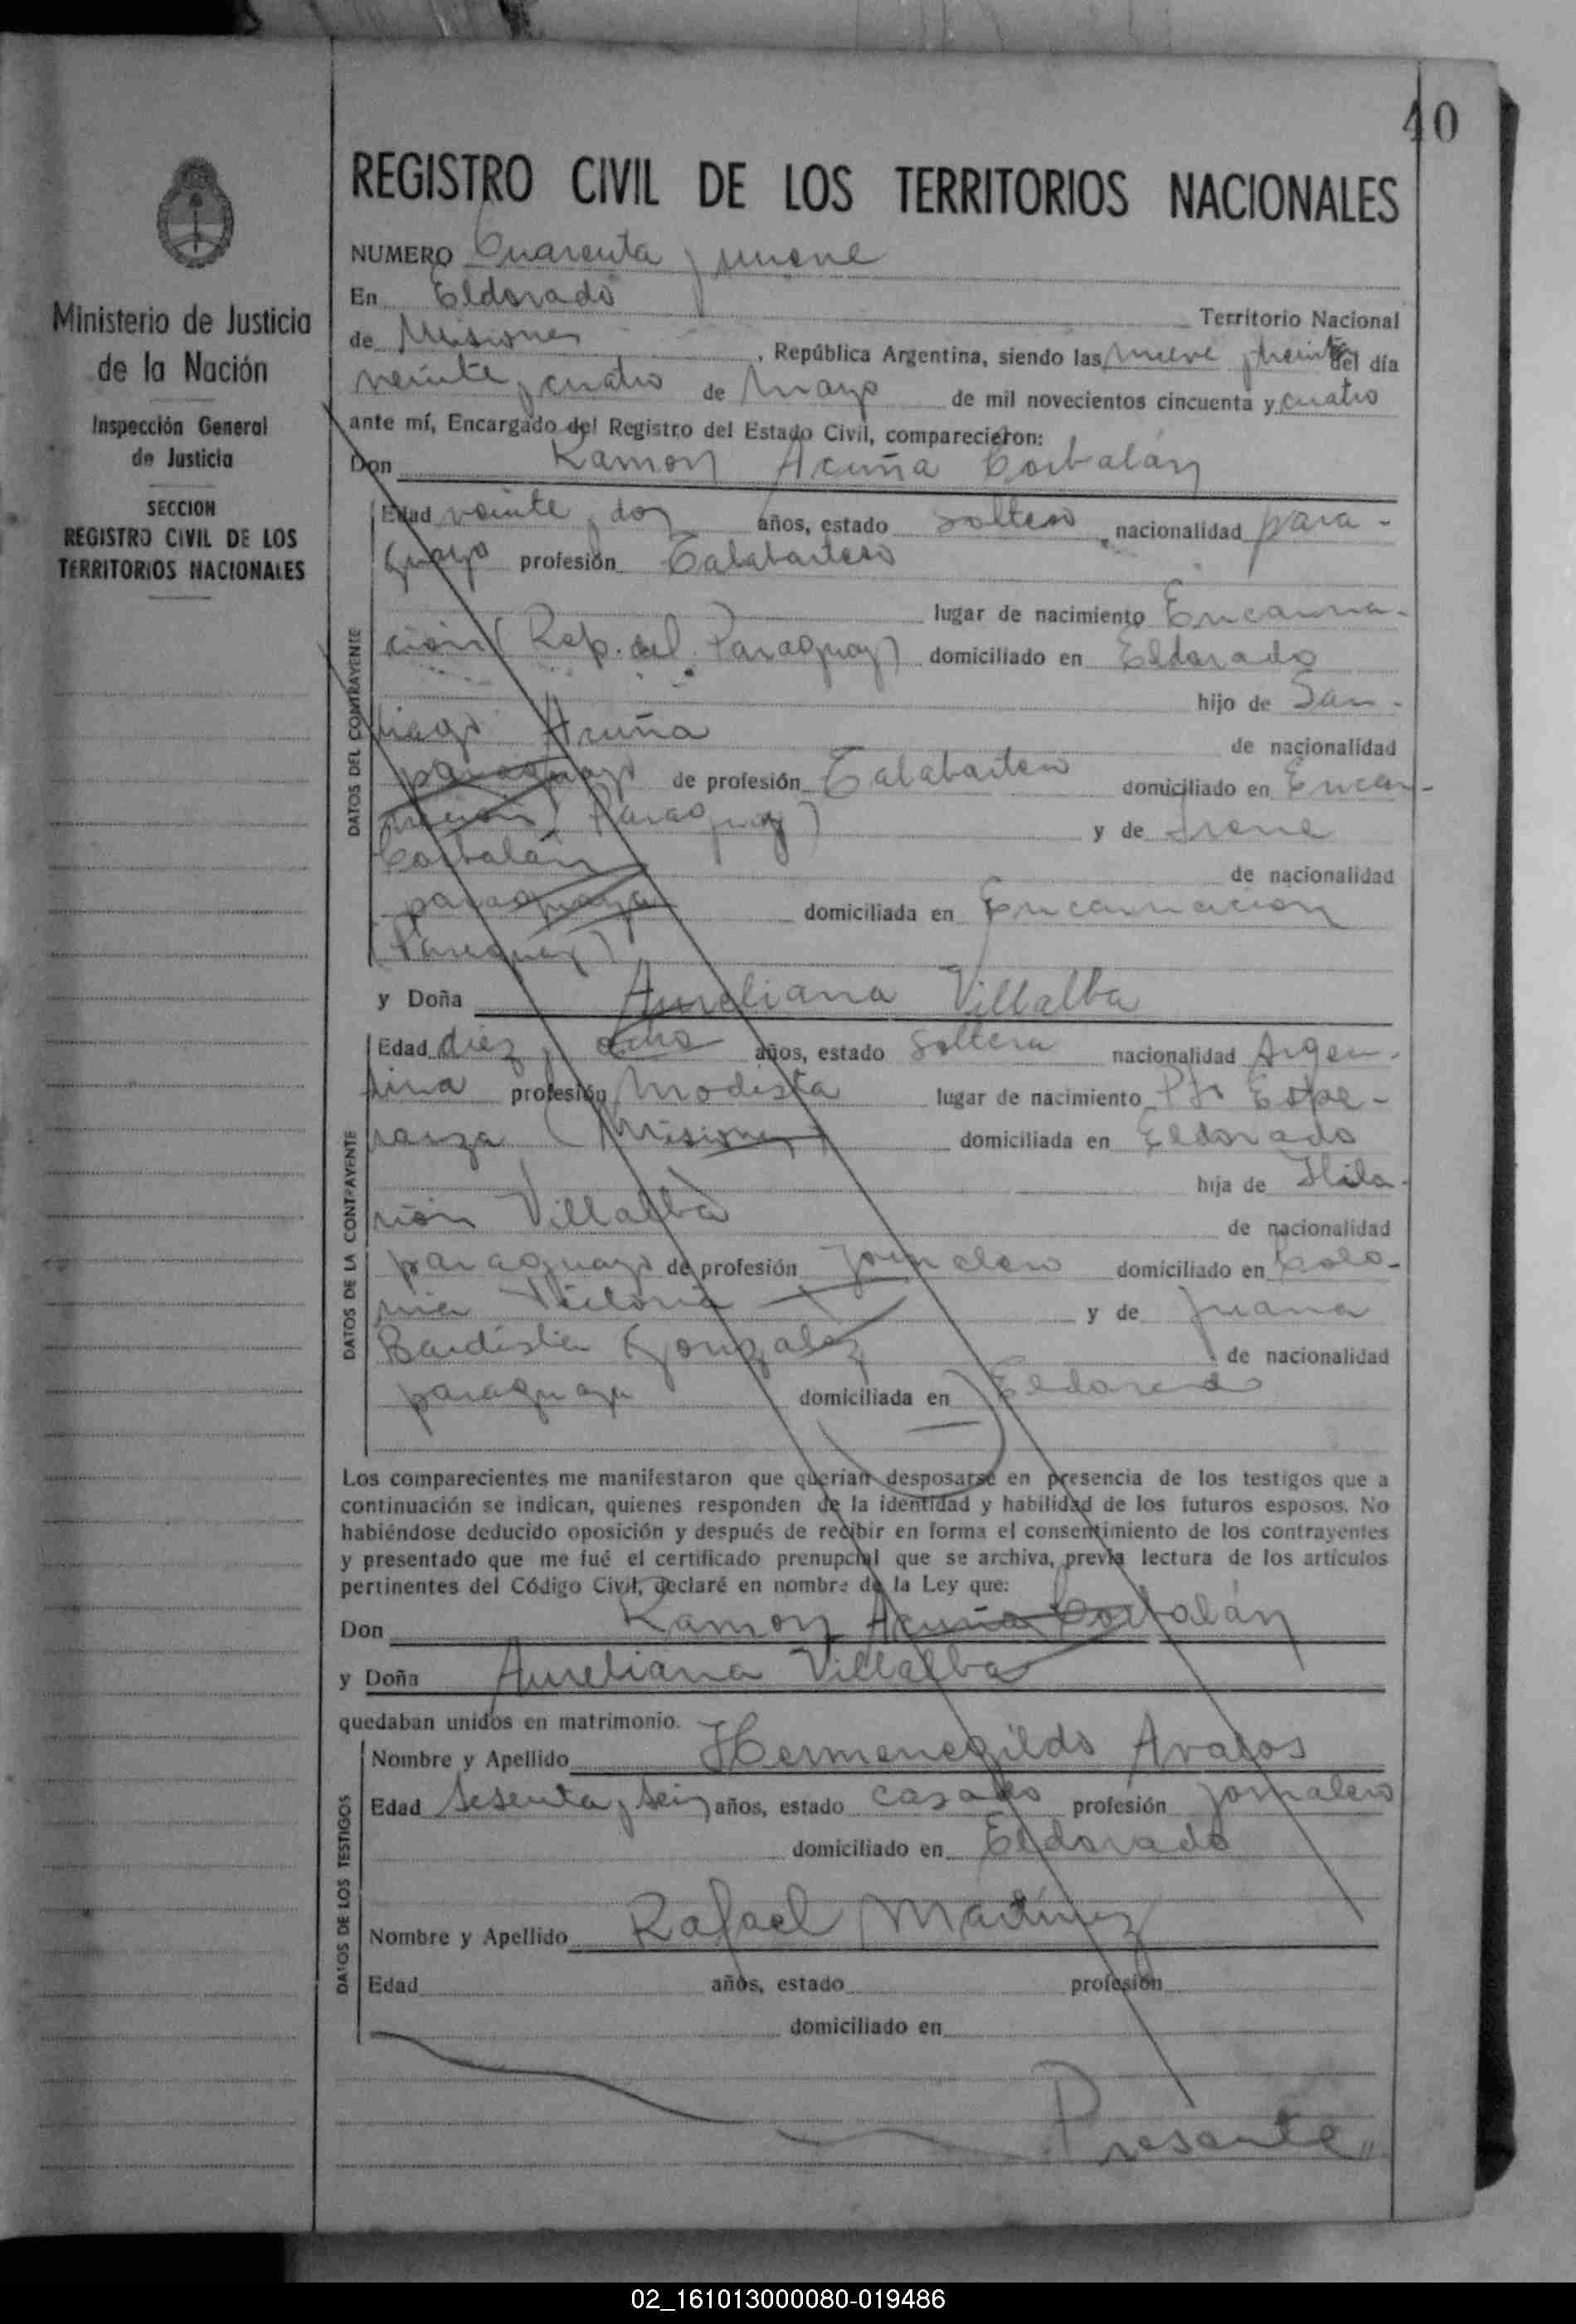 40
Ministerio de Justicia
de la Nación
Inspección General
de Justicia
SECCION
REGISTRO CIVIL DE LOS
TERRITORIOS NACIONALES
REGISTRO CIVIL DE LOS TERRITORIOS NACIONALES
NUMERO Cuarenta y nueve
En Eldorado Territorio Nacional
de Misiones, República Argentina, siendo las nueve y treinta del día
veinte y cuatro de mayo de mil novecientos cincuenta y cuatro
ante mí, Encargado del Registro del Estado Civil, comparecieron:
Don Ramon Acuña Corbalán
DATOS DEL CONTRAYENTE
Edad veinte y dos años, estado soltero, nacionalidad para-
guayo profesión Talabartero
lugar de nacimiento Encarna-
ción (Rep. del Paraguay) domiciliado en Eldorado
hijo de San-
tiago Acuña de nacionalidad
paraguayo de profesión Talabartero domiciliado en Encar-
nación (Paraguay) y de Irene
Corbalán de nacionalidad
paraguaya domiciliada en Encarnacion
(Paraguay)
y Doña Aureliana Villalba
DATOS DE LA CONTRAYENTE
Edad diez y ocho años, estado soltera nacionalidad Argen-
tina profesión Modista lugar de nacimiento Pto Espe-
ranza (Misiones) domiciliada en Eldorado
hija de Hila-
rión Villalba de nacionalidad
paraguayo de profesión jornalero domiciliado en Colo-
nia Victoria y de Juana
Bautista Gonzalez de nacionalidad
paraguaya domiciliada en Eldorado
Los comparecientes me manifestaron que querían desposarse en presencia de los testigos que a
continuación se indican, quienes responden de la identidad y habilidad de los futuros esposos. No
habiéndose deducido oposición y después de recibir en forma el consentimiento de los contrayentes
y presentado que me fué el certificado prenupcial que se archiva, previa lectura de los artículos
pertinentes del Código Civil, declaré en nombre de la Ley que:
Don Ramon Acuña Corbalán
y Doña Aureliana Villalba
quedaban unidos en matrimonio.
DATOS DE LOS TESTIGOS
Nombre y Apellido Hermenegildo Avalos
Edad sesenta y seis años, estado casado profesión jornalero
domiciliado en Eldorado
Nombre y Apellido Rafael Martínez
Edad años, estado profesión
domiciliado en
Presente
02_161013000080-019486